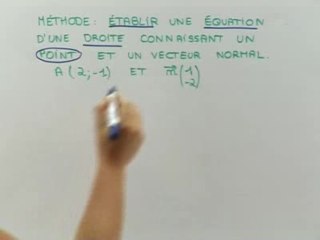 MÉTHODE: ÉTABLIR UNE ÉQUATION
D'UNE DROITE CONNAISSANT UN
POINT ET UN VECTEUR NORMAL.
A (2;-1) ET n⃗(1
-2)